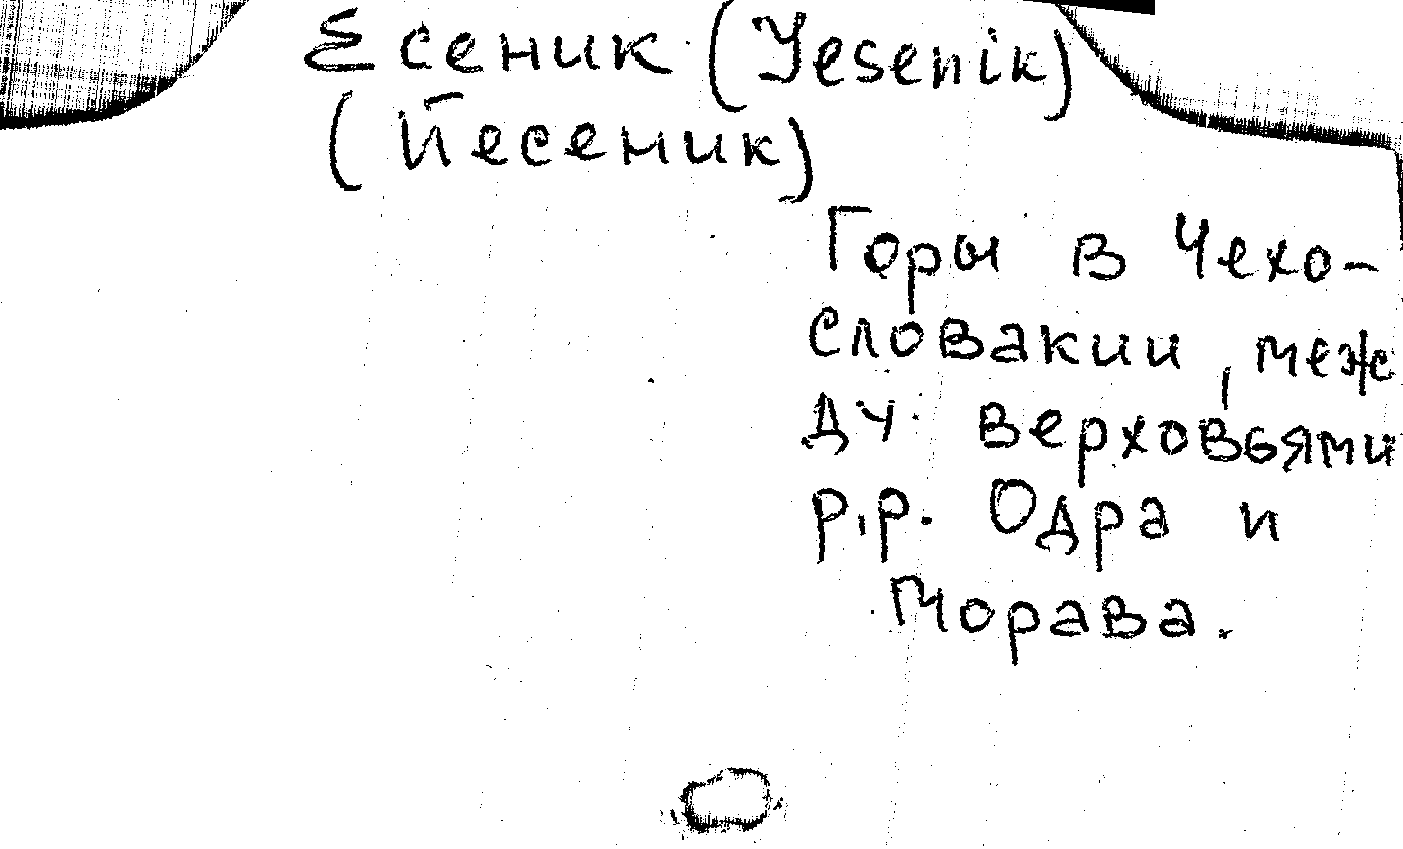 Есеник (Yesenik)
(Йесеник)
Горы в Чехо-
словакии, меж
ду верховьями
р.р. Одра и
Морава.